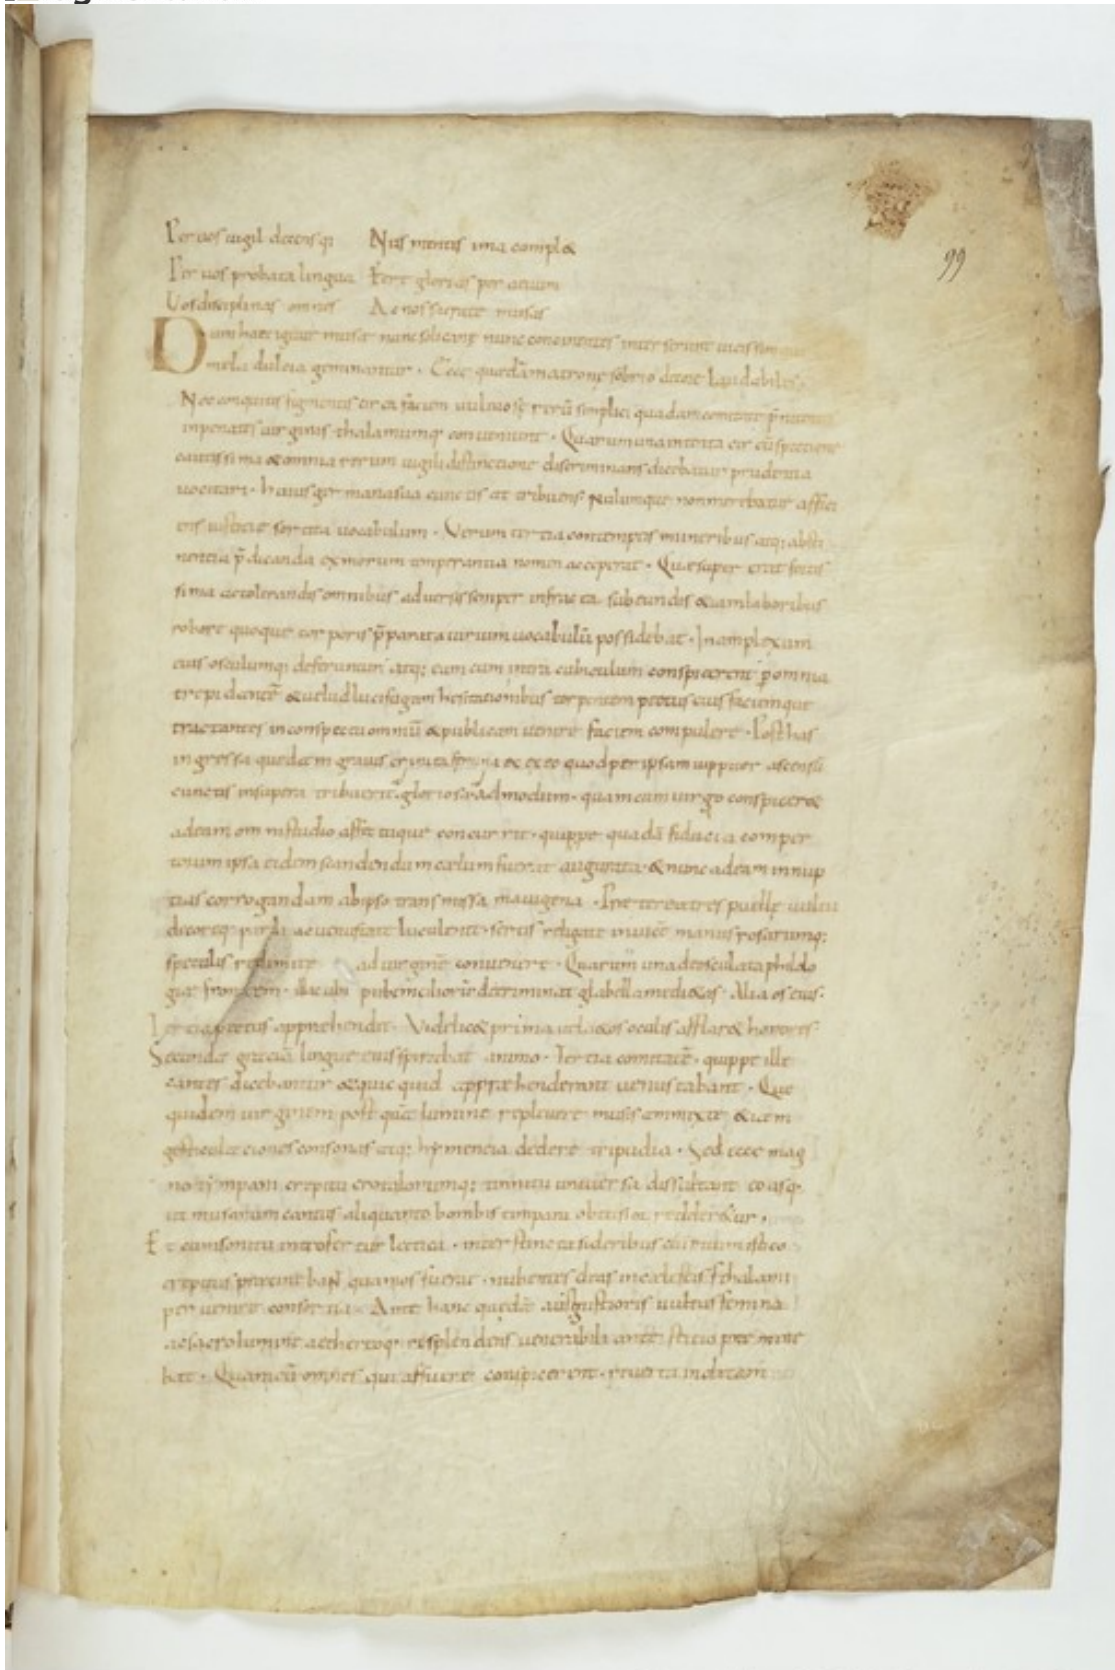 99
Per uos uigil decens qi Nus mentis ima complę&
Per uos probata lingua Fert glorias per aeuum
Uos disciplinas omnes Ac nos sacrate musis
Dum haec igitur musae nunc solicane nunc concinentes interserunt
mela dulcia geminantur. Ecce quedā matronę sobrio decore laudabiles
Nec conquisitis figmentis circa faciem uultuose uerū simplici quadam comitate
in penatis uirginis thalamumq; conueniunt. Quarum una intenta circūspectione
cautissima & omnia rerum uigili distinctione discriminans dicebatur prudentia
uocitari. huius germana sua cunctis attribuens nulumque non merebatur affici
ens iusticiae sortita uocabulum. Verum tertia contemptis muneribus atq; absti
nentia p̄dicanda ex morum temperantia nomen acceperat. Quae super erat fortis
sima ac tolerandis omnibus aduersis semper infracta subeundis &iam laboribus
robore quoque corporis p̄parata uirium uocabulū possidebat. In amplexum
eius osculumq; deferuntur atq; eam cum intra cubiculum conspicerent p omnia
trepidantē & uelud lucifugam hesitationibus torpentem pectus eius faciemque
tractantes in conspectu omniū & publicam uenire faciem compulere. Post has
ingressa quedam grauis crinita femina & ex eo quod per ipsam iuppiter ascensū
cunctis in supera tribuerit gloriosa admodum. quam cum uirgo conspicer&
ad eam omni studio affectuque concurrit. quippe quadā fiducia comper
totum ipsa eidem scandendum caelum fuerat augurata & nunc ad eam in nup
tias corrogandam ab ipso transmissa maiugena. Praeterea tres puellę uultu
decoreq; parili ac uenustate luculente. sertis religate inuicē manus rosarumq;
speculis redimite ad uirginē conuenere. Quarum una deosculata philolo
giae frontem. illic ubi pubem ciliorū discriminat glabella medi&as. Alia os eius.
Tertia pectus apprehendit. Videlic& prima ut l&os oculis afflar& honores
Secunda graciā lingue eius spirabat animo. Tertia comitatē. quippe ille
carites dicebantur & quic quid apprehenderant uenustabant. Que
quidem uirginem post quā lumine repleuere musis ammixte & iam
gesticulaciones consonas atq; hymeneia dedere tripudia. Sed ecce mag
no tympani crepitu crotalorumq; tinnitu uniuersa dissultant eo usq;
ut musarum cantus aliquanto bombis timpani obtusior redder&ur.
Et cum sonitu intro fertur lectica. interstincta sideribus
crepitus
peruenire consueuit. Ante hanc quędā augustioris uultus femina
ac sacro lumine aethereoq; resplendens uenerabili antistitio premine
bat. Quam cū omnes qui affuere conspicerent. reuerta